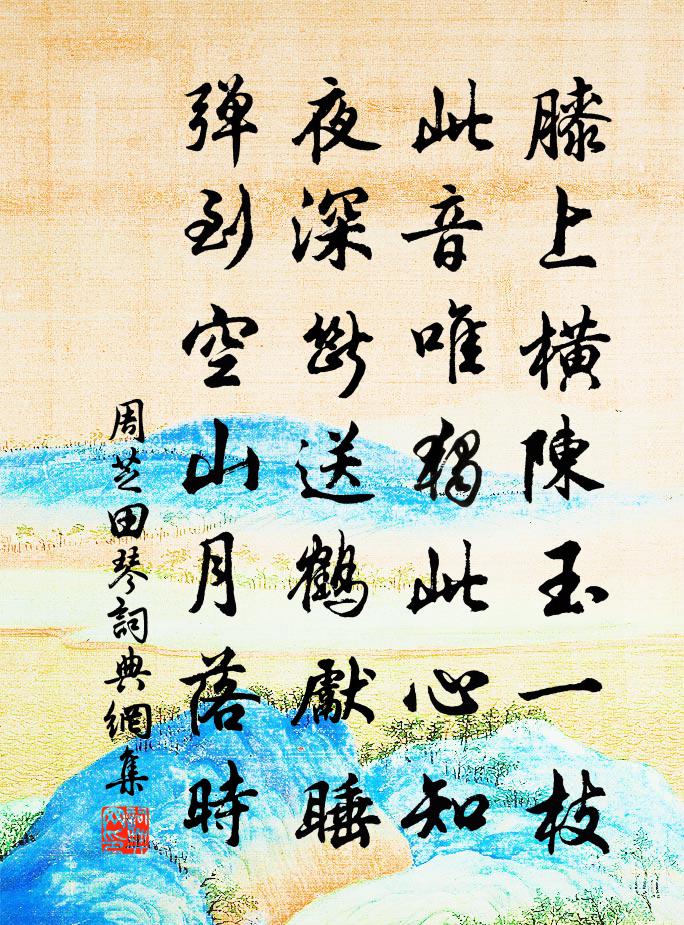 膝上橫陳玉一枝
此音唯獨此心知
夜深斷送鶴獻睡
弹到空山月落時
周芝田琴詞典網集